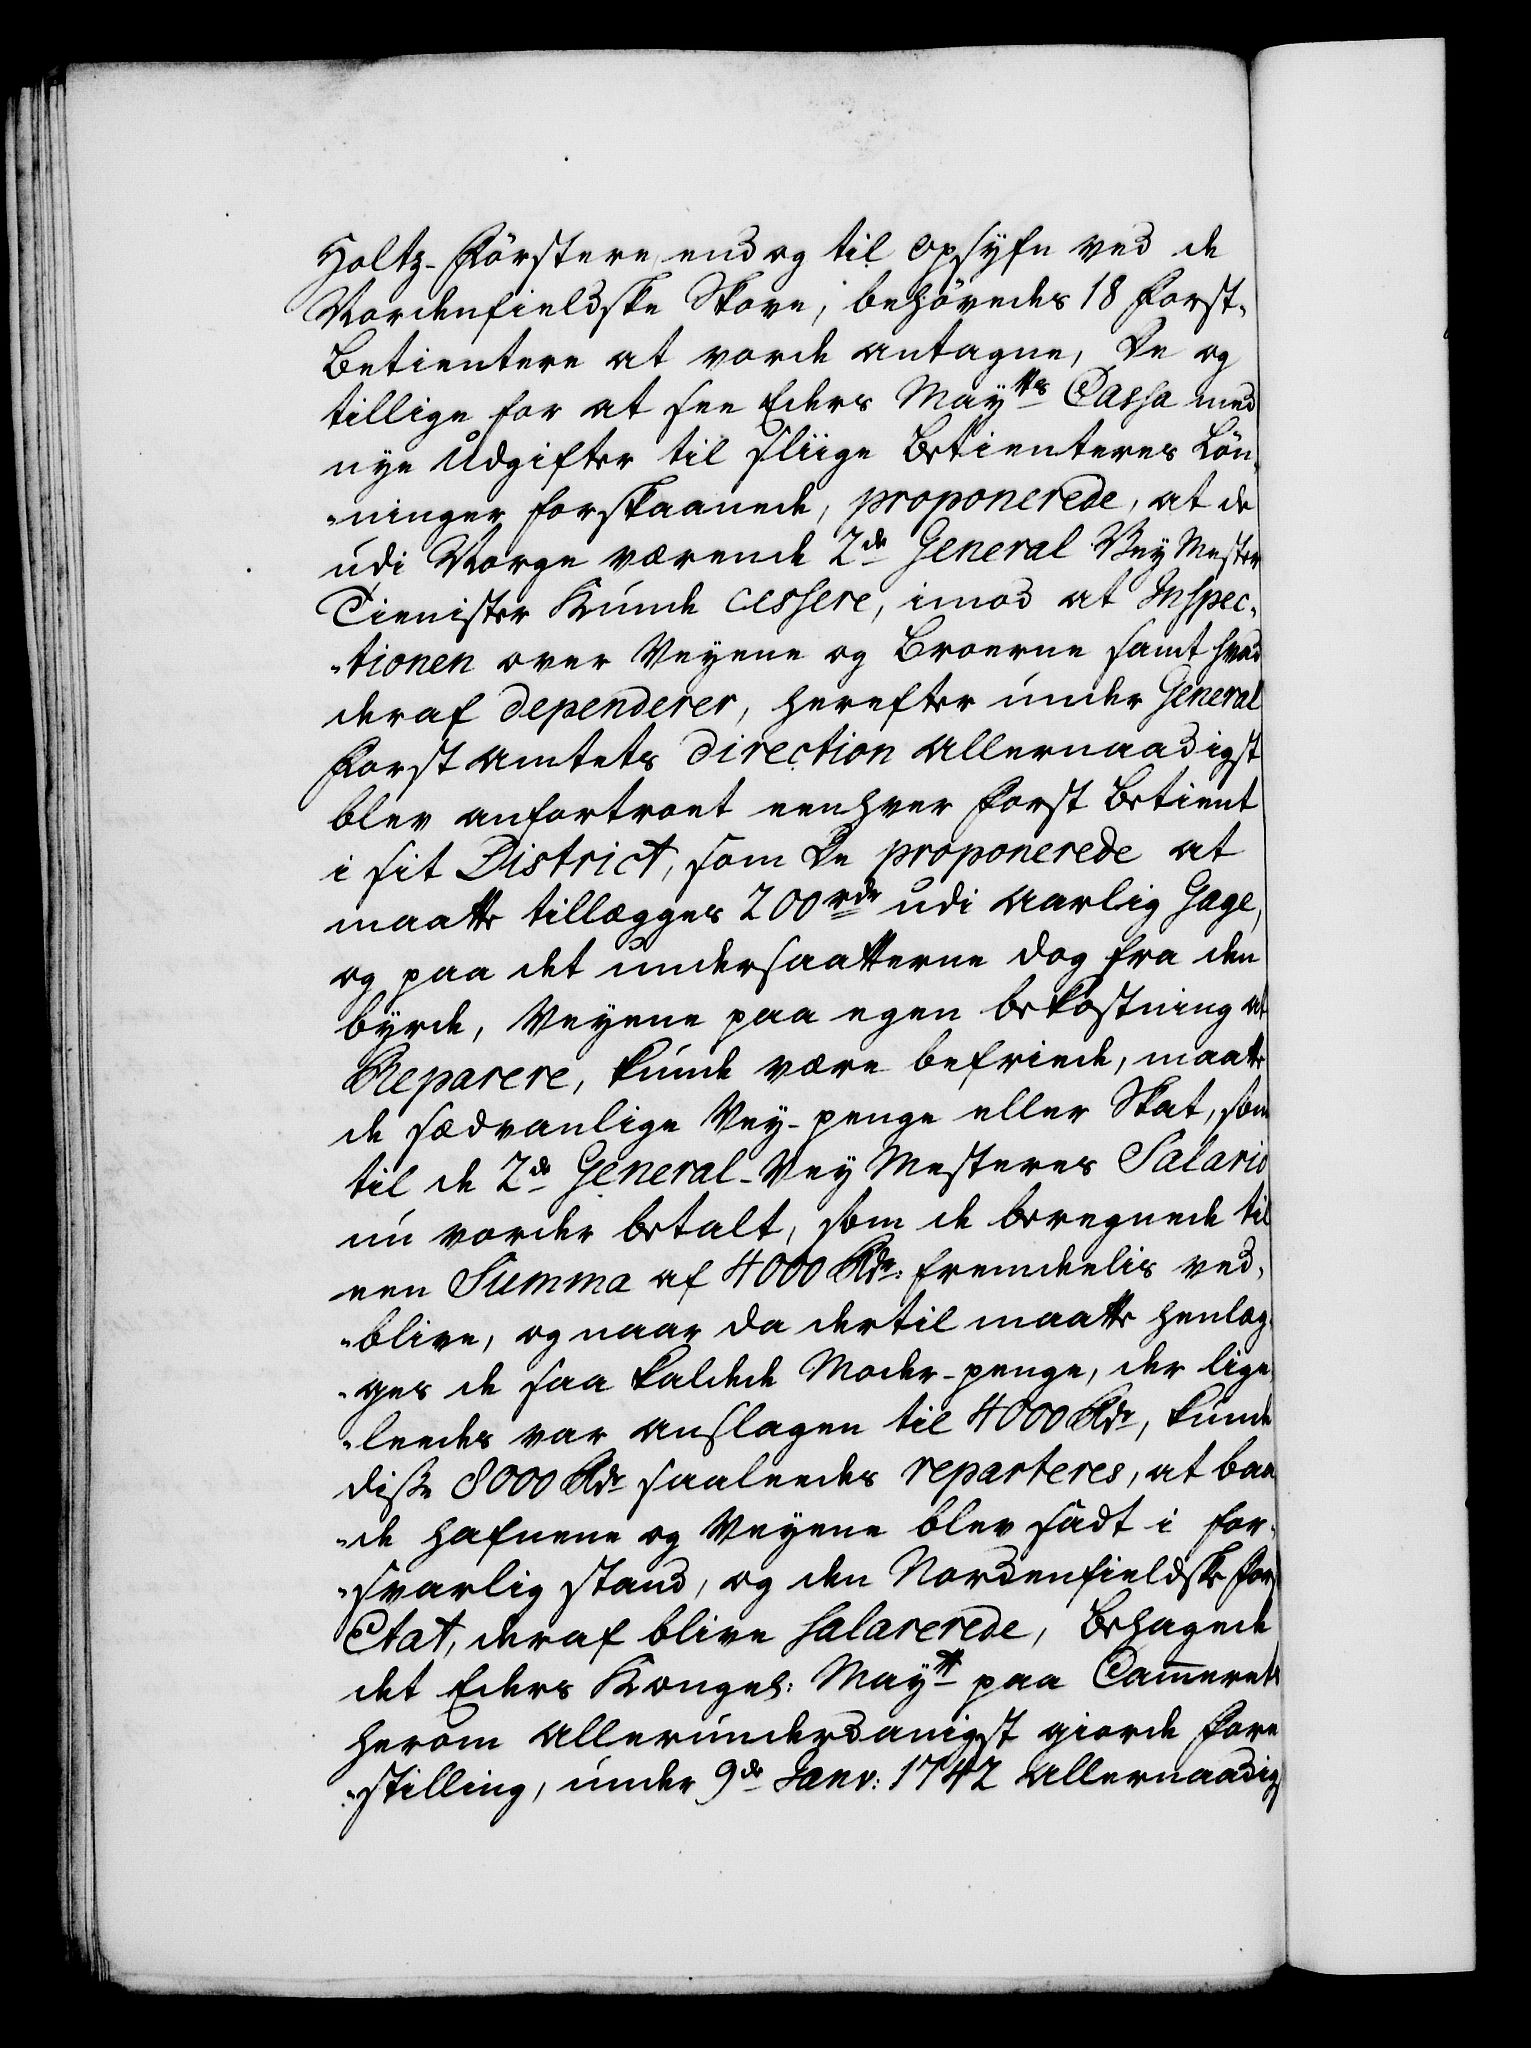 Holtz-Förstere end og til Opsyfn ved de
Nordenfieldske Skove, behövedes 18 Forst-
Betientere at vorde antagne, De og
tillige for at see Eders May<sup>tts</sup> Cassa med
nye Udgifter til sliige Betienteres Lön-
-ninger forskaanede, proponerede, at de
udi Norge værende 2<sup>de</sup> General Vey Mester
Tienister Kunde cessere, imod at Inspec-
-tionen over Veyene og Broerne samt hvad
deraf dependerer, herefter under General
Forst Amtets Direction Allernaadigst
blev anfortroet eenhver Forst Betient
i sit District, som De proponerede at
maatte tillægges 200 rdr udi Aarlig Gage,
og paa det undersaatterne dog fra den
byrde, Veyene paa egen bekostning at
Reparere, kunde være befriede, maatte
de sædvanlige Vey-penge eller Skat, som
til de 2<sup>de</sup> General-Vey Mesteres Salario
nu vorder betalt, som de beregnede til
een Summa af 4000 Rdr: fremdeelis ved-
-blive, og naar da dertil maatte henlæg-
-ges de saa kaldede Moder-penge, der lige-
-leedes var anslagen til 4000 Rdr, kunde
diße 8000 Rdr saaleedes reparteres, at baa-
-de hafnene og Veyene blev sadt i for-
-svarlig stand, og den Nordenfieldske For
Etat, deraf blive salarerede, Behagede
det Eders Kongel: May<sup>tt</sup> paa Cammerets
herom Allerunderdanigst giorde Fore
-stilling, under 9<sup>de</sup> Janv: 1742 Allernaadig